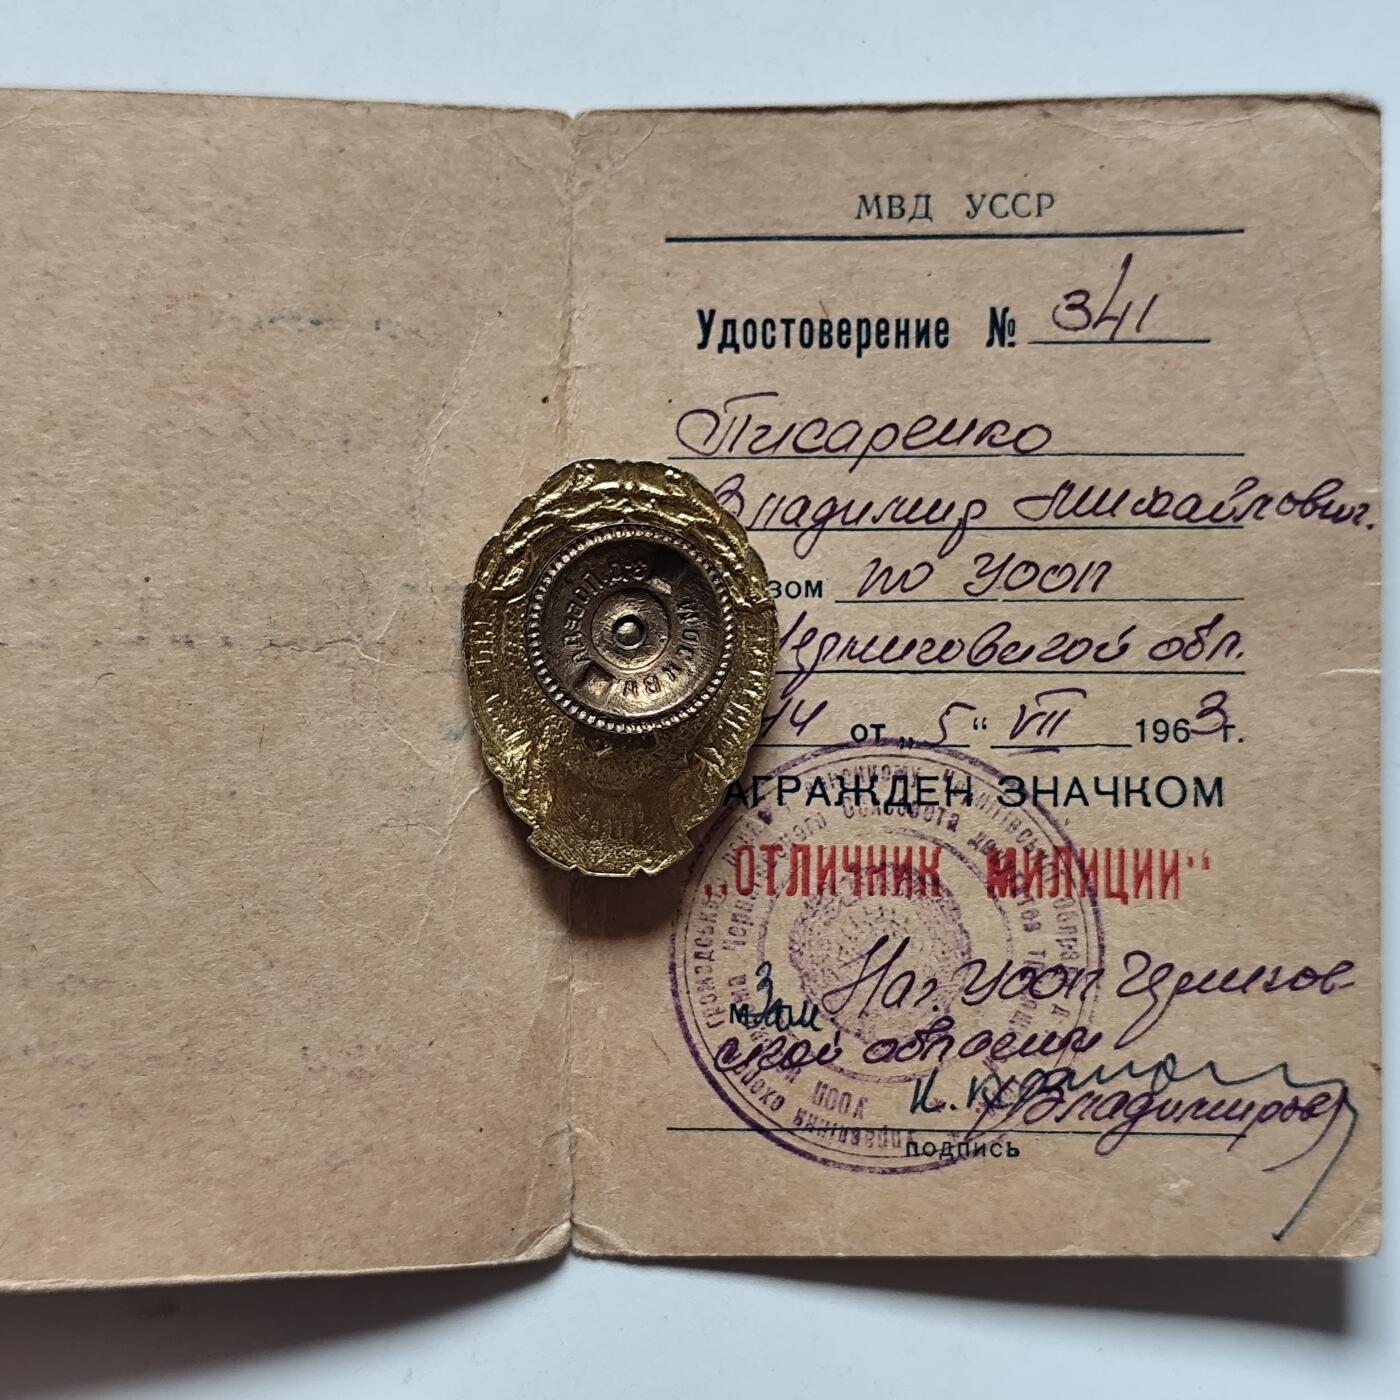 МВД УССР
Удостоверение № 341
Писаренко
Владимир Михайлович.
зом по УООП
Черниговской обл.
44 от „5“ VII 1963 г.
АГРАЖДЕН ЗНАЧКОМ
„ОТЛИЧНИК МИЛИЦИИ“
Зам Нач. УООП Чернигов-
ской области
Владимиров
подпись
ПОБЕДА
МОСКВА